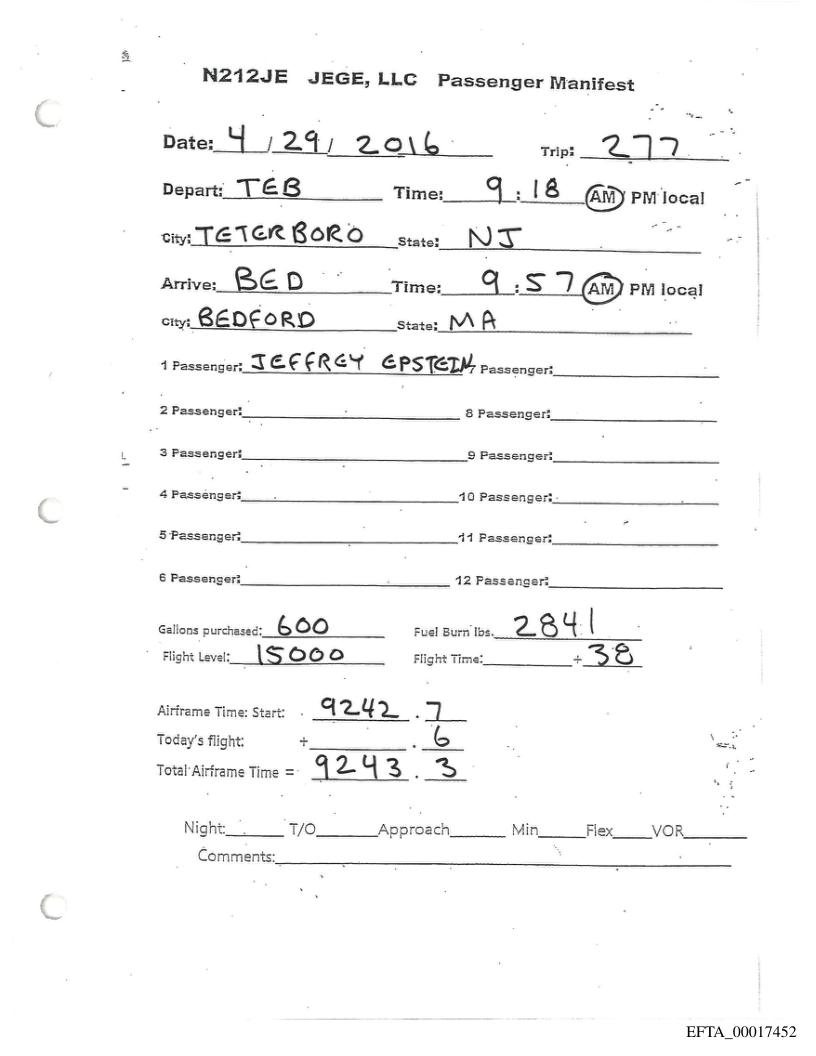 N212JE JEGE, LLC Passenger Manifest
Date: 4 / 29 / 2016 Trip: 277
Depart: TEB Time: 9 : 18 AM PM local
City: TETERBORO State: NJ
Arrive: BED Time: 9 : 57 AM PM local
City: BEDFORD State: MA
1 Passenger: JEFFREY EPSTEIN 7 Passenger:
2 Passenger: 8 Passenger:
3 Passenger: 9 Passenger:
4 Passenger: 10 Passenger:
5 Passenger: 11 Passenger:
6 Passenger: 12 Passenger:
Gallons purchased: 600 Fuel Burn lbs. 2841
Flight Level: 15000 Flight Time: + 38
Airframe Time: Start: 9242 . 7
Today's flight: + . 6
Total Airframe Time = 9243 . 3
Night: T/O Approach Min Flex VOR
Comments:
EFTA_00017452